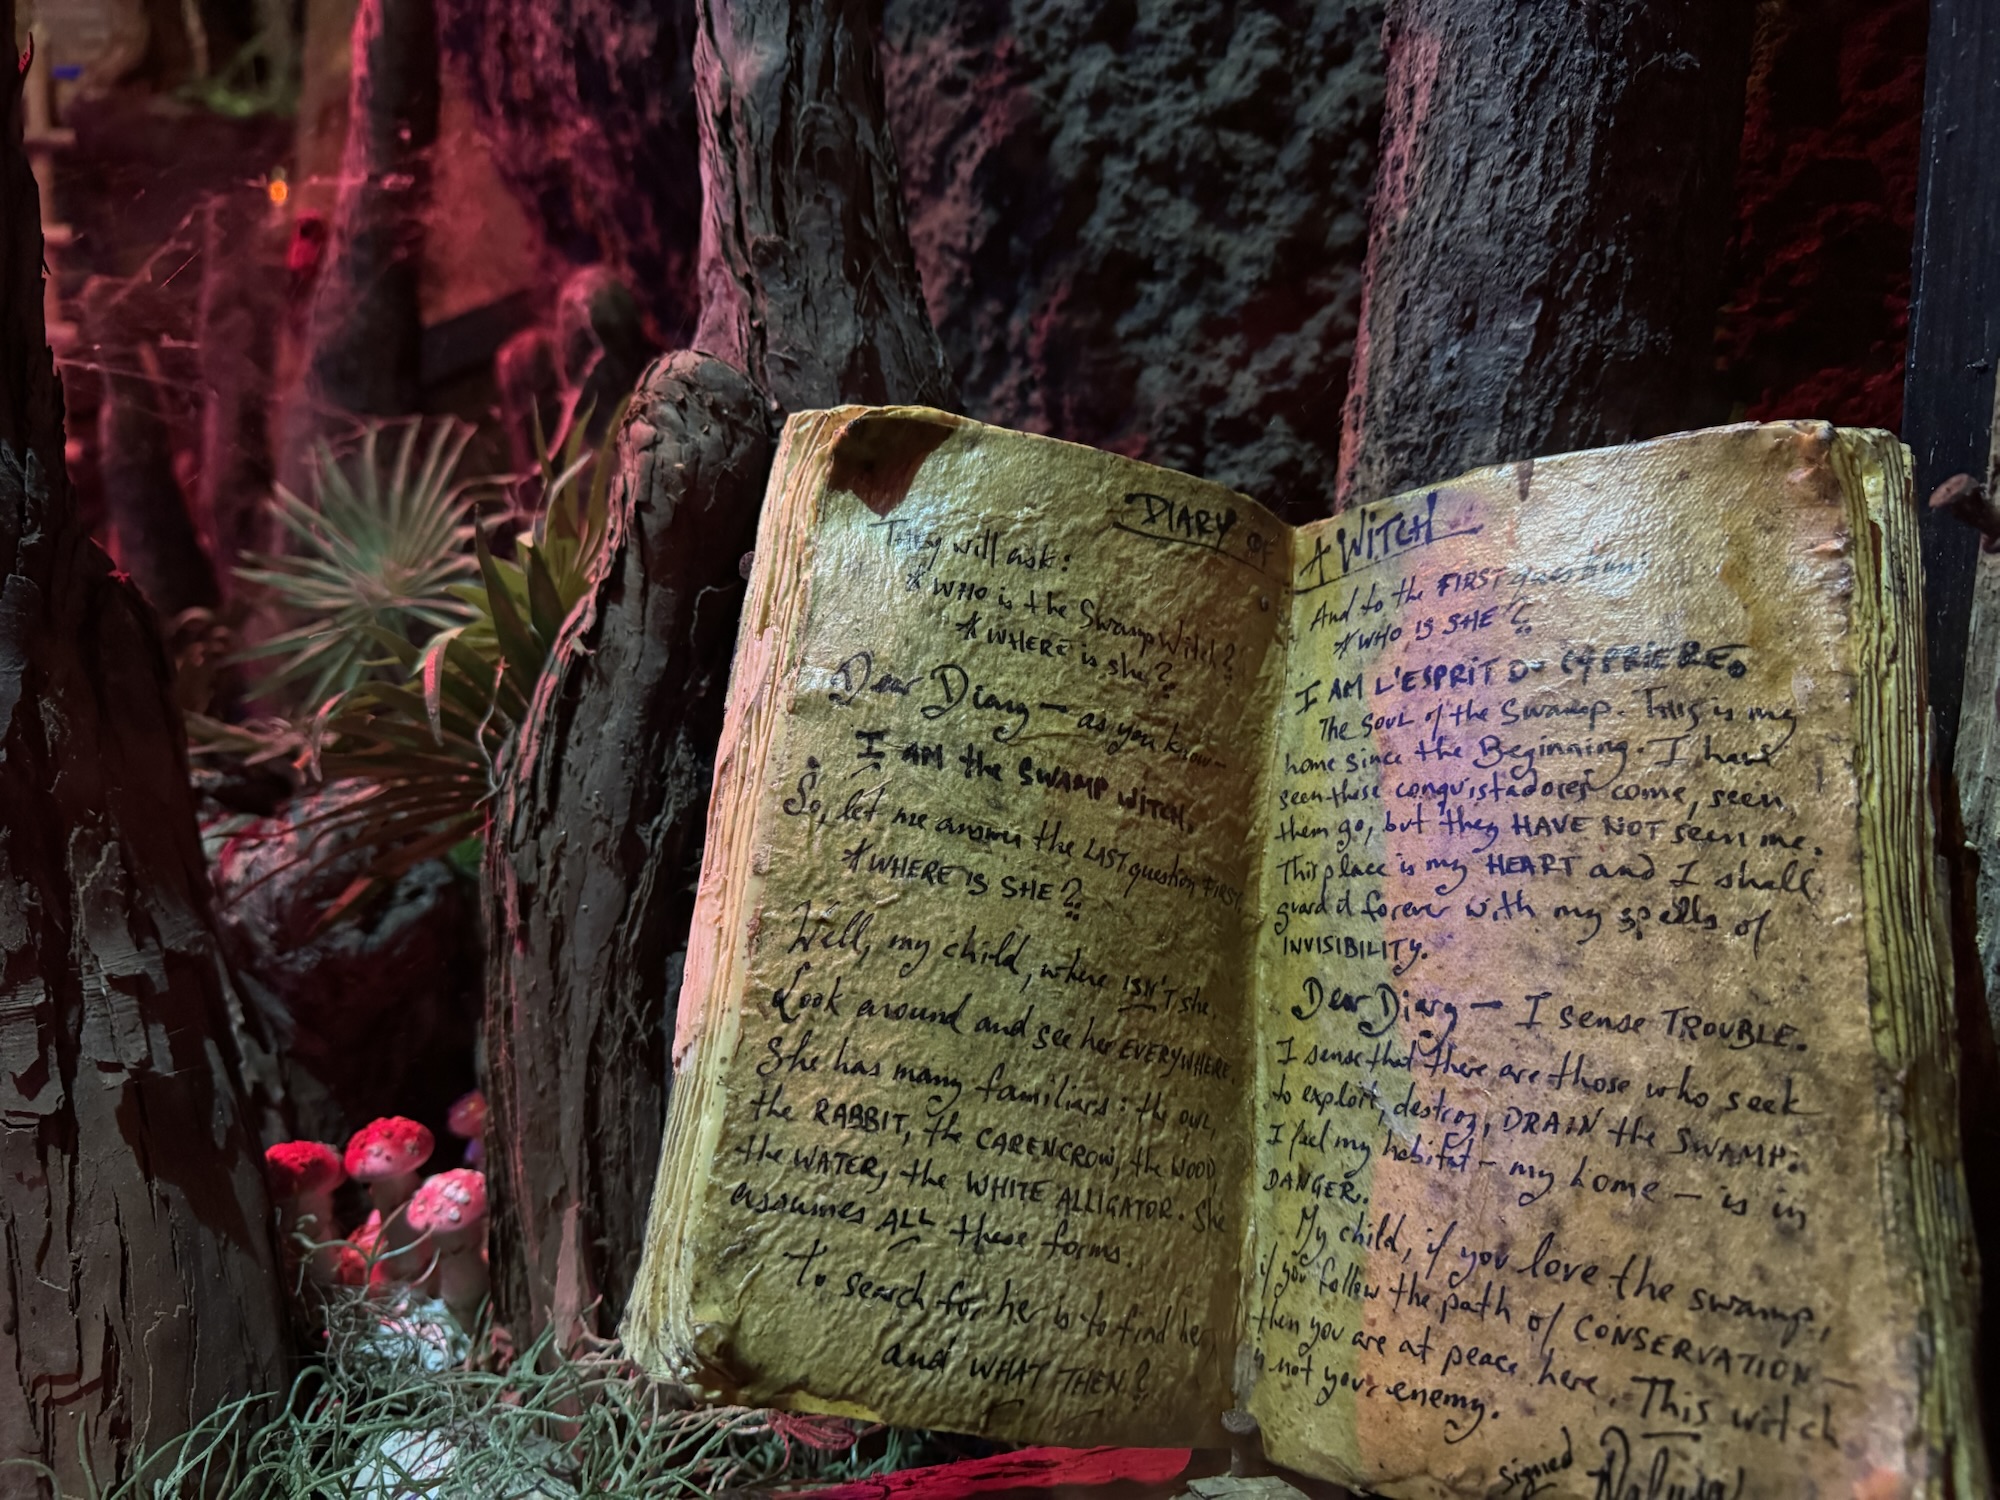 DIARY OF
They will ask:
* WHO is the Swamp Witch?
* WHERE is she?
Dear Diary — as you know—
I AM the SWAMP WITCH.
So, let me answer the LAST question FIRST
* WHERE IS SHE?
Well, my child, where ISN'T she.
Look around and see her EVERYWHERE.
She has many familiars: the owl,
the RABBIT, the CARENCROW, the WOOD,
the WATER, the WHITE ALLIGATOR. She
assumes ALL these forms.
To search for her is to find her,
and WHAT THEN?
A WITCH
And to the FIRST question:
* WHO IS SHE?
I AM L'ESPRIT DU CYPRIERE.
The SOUL of the Swamp. This is my
home since the Beginning. I have
seen those conquistadores come, seen
them go, but they HAVE NOT seen me.
This place is my HEART and I shall
guard it forever with my spells of
INVISIBILITY.
Dear Diary — I sense TROUBLE.
I sense that there are those who seek
to exploit, destroy, DRAIN the SWAMP.
I feel my habitat — my home — is in
DANGER.
My child, if you love the swamp,
if you follow the path of CONSERVATION —
then you are at peace here. This witch
is not your enemy.
signed